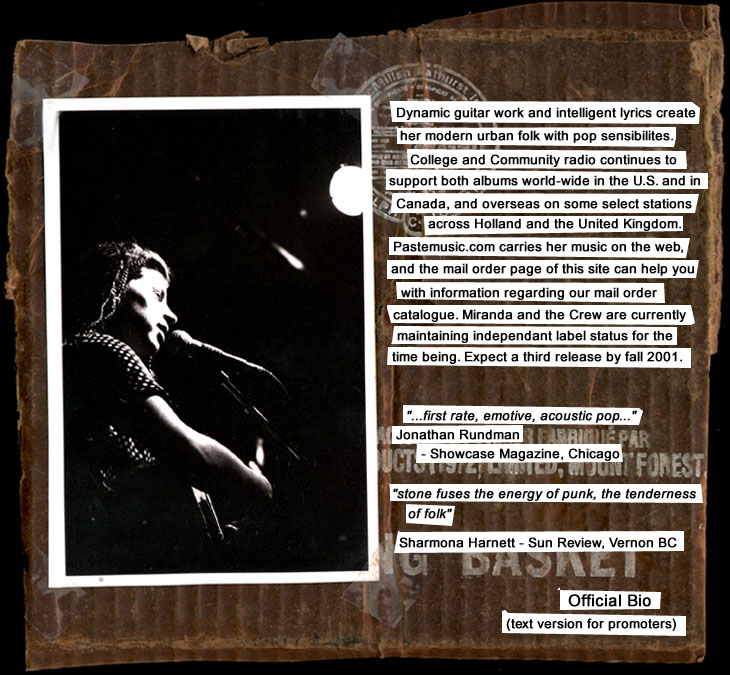 Dynamic guitar work and intelligent lyrics create
her modern urban folk with pop sensibilites.
College and Community radio continues to
support both albums world-wide in the U.S. and in
Canada, and overseas on some select stations
across Holland and the United Kingdom.
Pastemusic.com carries her music on the web,
and the mail order page of this site can help you
with information regarding our mail order
catalogue. Miranda and the Crew are currently
maintaining independant label status for the
time being. Expect a third release by fall 2001.
"...first rate, emotive, acoustic pop..."
Jonathan Rundman
FABRIQUÉ PAR
- Showcase Magazine, Chicago
LIMITED, MOUNT FOREST,
"stone fuses the energy of punk, the tenderness
of folk"
Sharmona Harnett - Sun Review, Vernon BC
BASKET
Official Bio
(text version for promoters)